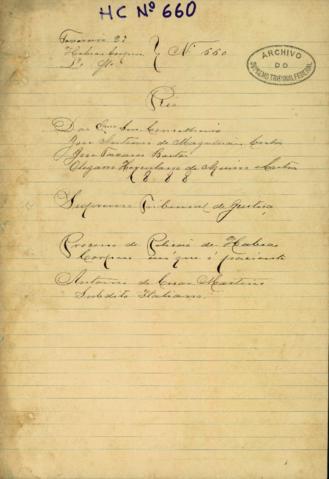 HC Nº 660
Fevereiro 27
Habeas corpus
Nº 660
ARCHIVO
DO
SUPREMO TRIBUNAL FEDERAL
Rio
Conselheiros
José Antonio de Magalhães Castro
José Tavares Bastos
Olegario Herculano de Aquino e Castro
1888
Supremo Tribunal de Justiça
de Petição de Habeas
Corpus em que é paciente
Antonio de
Subdito Italiano